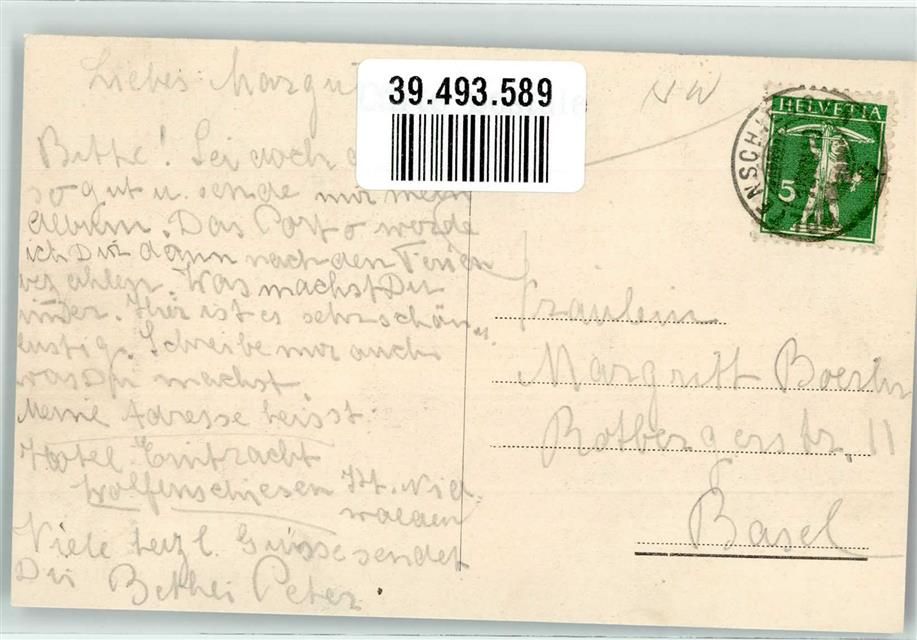 Liebes Margri
39.493.589
NW
HELVETIA
5
Bitte! Sei doch
so gut u. sende mir mein
Album. Das Porto werde
ich Dir dann nach den Ferien
bezahlen. Was machst Du
immer. Hier ist es sehr schön u.
lustig. Schreibe mir auch
was Du machst.
Meine Adresse heisst:
Hotel Eintracht
Wolfenschiesen Kt. Nid
walden
Viele herzl. Grüsse sendet
Dir Bethli Peter
Fräulein
Margritt Boerlin
Rotbergerstr. 11
Basel